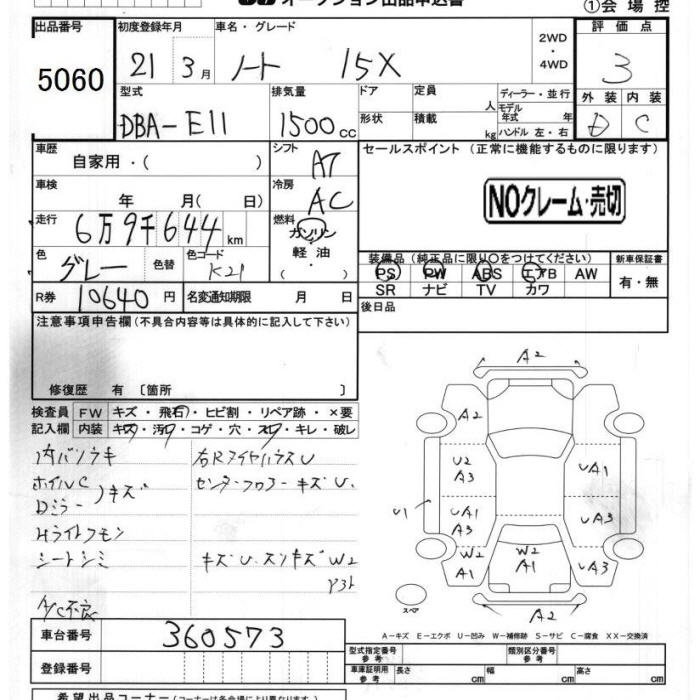 オークション出品申込書
①会場控
出品番号 初度登録年月 車名・グレード 2WD・4WD 評価点
5060 21 3月 ノート 15X 3
型式 排気量 ドア 定員 人 ディーラー・並行 外装 内装
DBA-E11 1500cc 形状 積載 kg モデル年式 年 ハンドル 左・右 D C
車歴 自家用・( ) シフト AT セールスポイント (正常に機能するものに限ります)
車検 年 月( 日) 冷房 AC NOクレーム・売切
走行 6万9千644km 燃料 ガソリン・軽油・( )
色 グレー 色替 色コード K21 装備品(純正品に限り○をつけてください) 新車保証書
PS PW ABS エアB AW 有・無
SR ナビ TV カワ
R券 10640円 名変通知期限 月 日 後日品
注意事項申告欄(不具合内容等は具体的に記入して下さい)
修復歴 有 〔箇所 〕
検査員 FW キズ・飛石・ヒビ割・リペア跡・×要
記入欄 内装 キズ・汚レ・コゲ・穴・スレ・キレ・破レ
ホイルC
Dミラー キズ
センターフロアー キズ U.
シートシミ
A/C不良
A2
A2
U2 A3 UA1
U1 UA1 A3 UA3
W2 A1 W2 A1 UA3
スペア A2
A-キズ E-エクボ U-凹み W-補修跡 S-サビ C-腐食 XX-交換済
車台番号 360573 型式指定番号 参考 類別区分番号 参考
登録番号 車庫証明用 参考 長さ cm 幅 cm 高さ cm
希望出品コーナー(コーナーは各会場により異なります)